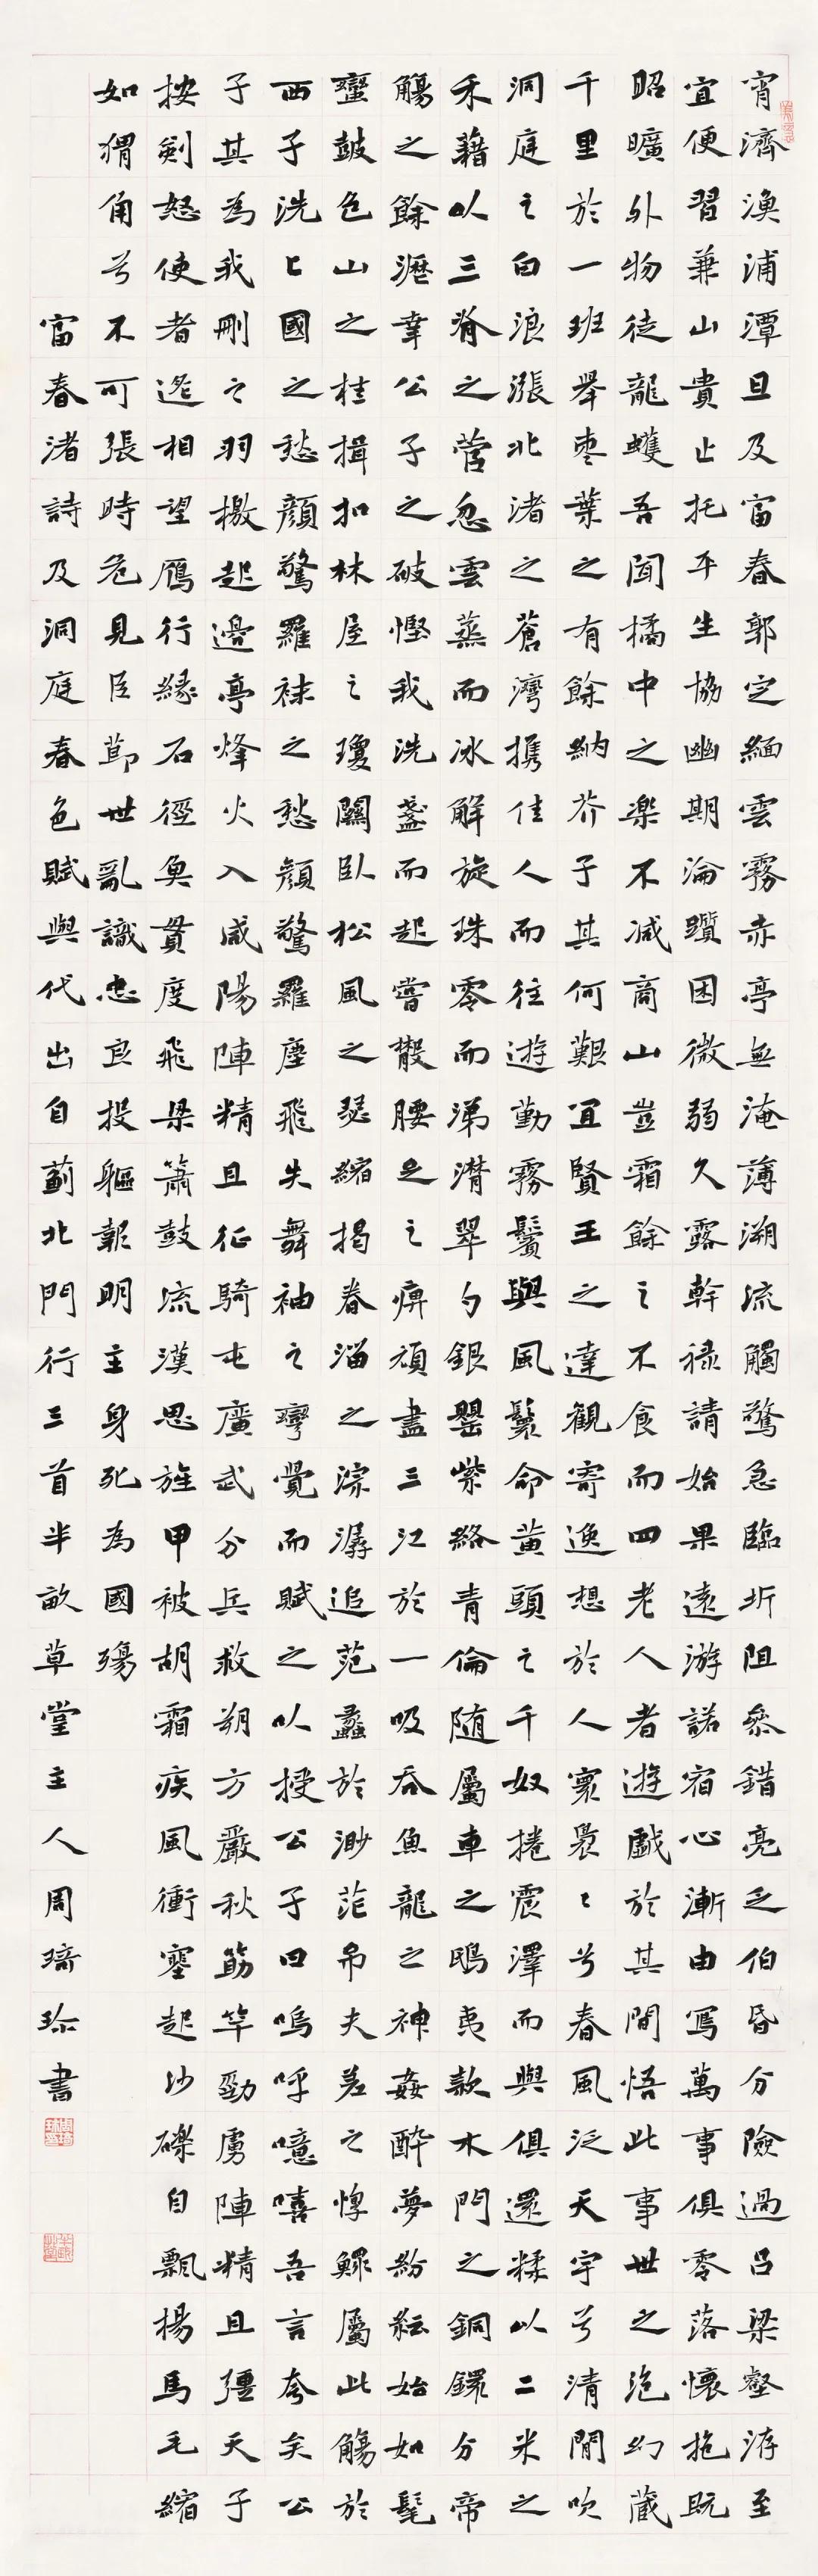 宵濟漁浦潭旦及富春郭定緬雲霧赤亭無淹薄溯流觸驚急臨圻阻參錯亮乏伯昏分險過呂梁壑洊至
宜便習兼山貴止托平生協幽期淪躓困微弱久露幹祿請始果遠游諾宿心漸由寫萬事俱零落懷抱既
昭曠外物徒龍蠖吾聞橘中之樂不減商山豈霜餘之不食而四老人者遊戲於其間悟此事世之泡幻藏
千里於一班舉棗葉之有餘納芥子其何艱宜賢王之達觀寄逸想於人寰褭〻兮春風泛天宇兮清閒吹
洞庭之白浪漲北渚之蒼灣攜佳人而往遊勤霧鬢與風鬟命黃頭之千奴捲震澤而與俱還糅以二米之
禾藉以三脊之菅忽雲蒸而冰解旋珠零而涕潸翠勺銀罌紫絡青倫随屬車之鴟夷款木門之銅鐶分帝
觴之餘瀝幸公子之破慳我洗盞而起嘗散腰足之痹頑盡三江於一吸吞魚龍之神姦醉夢紛紜始如髦
蠻鼓包山之桂楫扣林屋之瓊關臥松風之瑟縮揭春溜之淙潺追范蠡於渺茫吊夫差之惸鰥屬此觴於
西子洗亡國之愁顏驚羅襪之愁顏驚羅塵飛失舞袖之彎覺而賦之以授公子曰嗚呼噫嘻吾言夸矣公
子其為我刪之羽檄起邊亭烽火入咸陽陣精且征騎屯廣武分兵救朔方嚴秋筋竿勁虜陣精且彊天子
按劍怒使者遙相望鴈行緣石徑魚貫度飛梁簫鼓流漢思旌甲被胡霜疾風衝塞起沙礫自飄揚馬毛縮
如猬角弓不可張時危見臣節世亂識忠良投軀報明主身死為國殤
富春渚詩及洞庭春色賦與代出自薊北門行三首半畝草堂主人周琦珎書